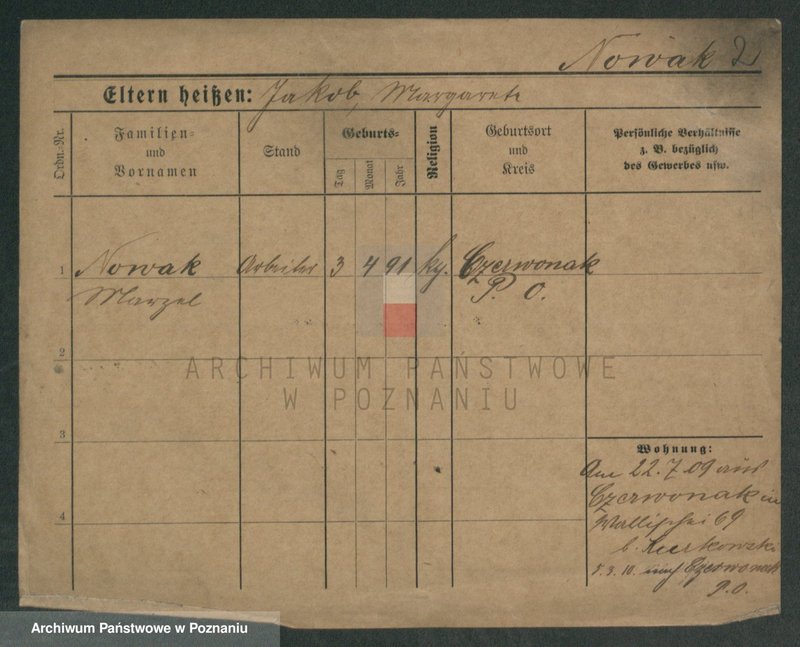 Nowak
Eltern heißen: Jakob, Margarete
Ordn.-Nr.
Familien-
und
Vornamen
Stand
Geburts-
Tag
Monat
Jahr
Religion
Geburtsort
und
Kreis
Persönliche Verhältnisse
z. B. bezüglich
des Gewerbes usw.
1 Nowak Arbeiter 3 4 91 Czerwonak
Marzel P. O.
2
3
4
Wohnung:
Am 22.7.09 aus
Czerwonak in
Wallischei 69
b.
5.3.10. Czerwonak
P.O.
ARCHIWUM PAŃSTWOWE
W POZNANIU
Archiwum Państwowe w Poznaniu